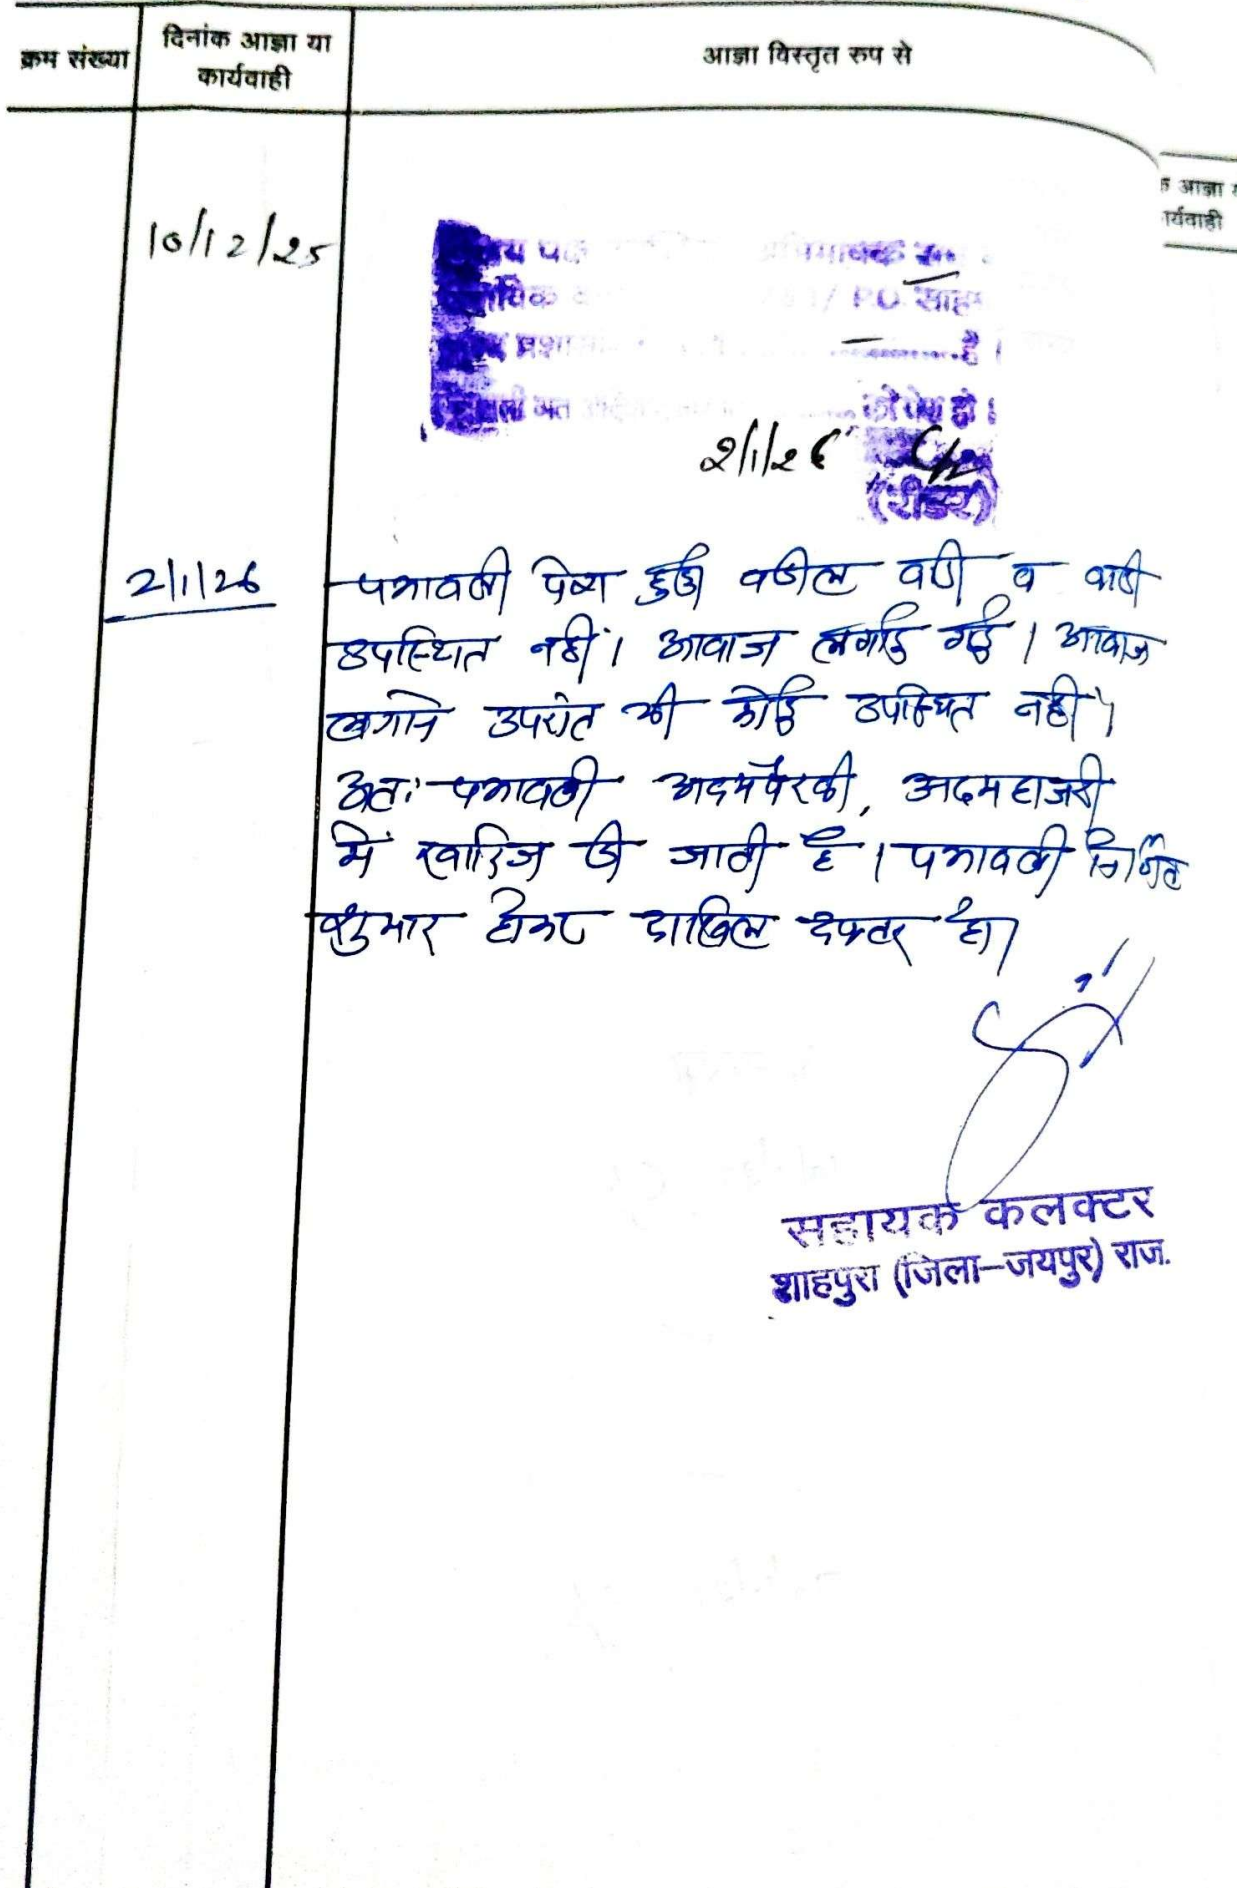 क्रम संख्या
दिनांक आज्ञा या
कार्यवाही
आज्ञा विस्तृत रुप से
क आज्ञा
र्यवाही
10/12/25
अभिभावक
P.O. साहब
है।
को पेश हो।
2/1/26
(रीडर)
2/1/26
पत्रावली पेश हुई वकील वादी व वादी
उपस्थित नहीं। आवाज लगाई गई। आवाज
लगाने उपरांत भी कोई उपस्थित नहीं।
अतः पत्रावली अदमपैरवी, अदमहाजरी
में खारिज की जाती है। पत्रावली निर्णित
शुमार होकर दाखिल दफ्तर हो।
सहायक कलक्टर
शाहपुरा (जिला-जयपुर) राज.